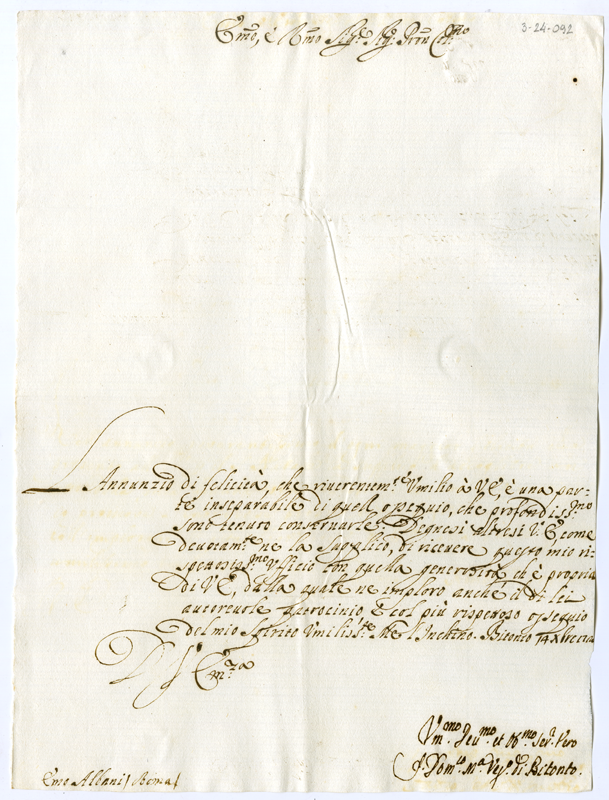 3-24-092
Emo, è Rmo Sig.r Sig. Prn Col.mo
L'Annunzio di felicità, che riverentem.te Umilio à V.E., è una par-
te inseparabile di quel ossequio, che profondiss.mo
sono tenuto conservarle. Degnesi altresì V.E. come
devotam.te ne la supplico, di ricevere questo mio ri-
spettosis.mo Ufficio con quella generosità, ch'è propria
di V.E., dalla quale ne imploro anche il di lei
autorevole patrocinio è col più rispettoso ossequio
del mio Spirito Umiliss.te Me l'Inchino. Bitonto
D. V. Em.za
Um.mo Deu.mo et Ob.mo Ser. Vero
F. Dom.co M.a Ves.o di Bitonto.
Emo Albani / Roma /